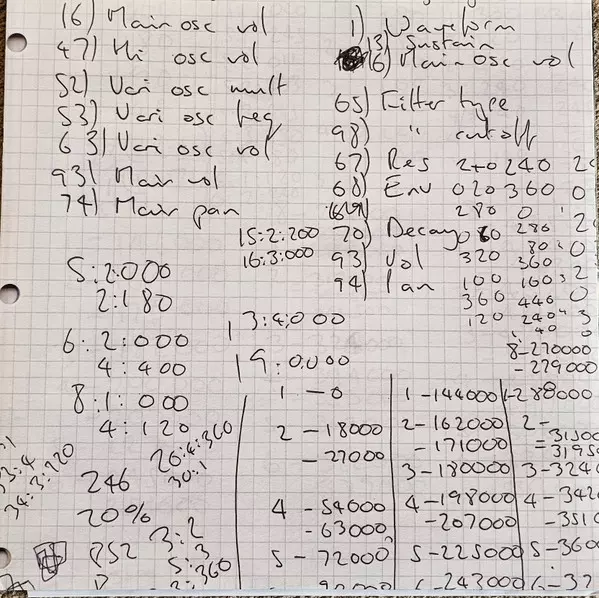 16) Main osc vol
47) Hi osc vol
52) Vari osc mult
53) Vari osc freq
63) Vari osc vol
93) Main vol
74) Main pan
1) Waveform
3) Sustain
16) Main osc vol
65) Filter type
98) " cutoff
67) Res 240 240 20
68) Env 020 360 0
280 0
70) Decay 080 280 2
80 0
93) Vol 320 360
94) Pan 100 160 2
360 440 0
120 240 3
40 0
15:2:200
16:3:000
5:2:000
2:180
6:2:000
4:400
8:1:000
4:120
13:4:000
19:0:000
8-270000
-279000
26:4:360
30:1
34:3:220
246
20%
3:2
5:3
2:360
1 - 0
2 - 18000
- 27000
4 - 54000
- 63000
5 - 72000
1 - 144000
2 - 162000
- 171000
3 - 180000
4 - 198000
- 207000
5 - 225000
6 - 243000
1 - 288000
2 -
3 - 3240
4 - 342
- 351
5 - 360